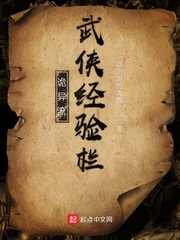 武侠经验栏
诡异流
起点中文网